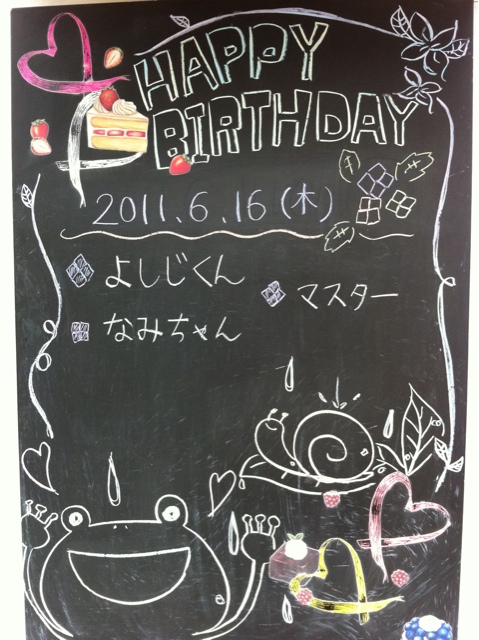 HAPPY
BIRTHDAY
2011.6.16(木)
よしじくん
マスター
なみちゃん